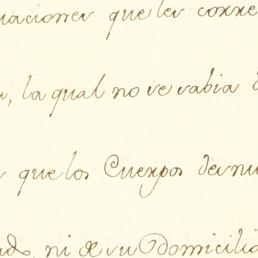 uaciones que les corre
, la qual no se sabia
que los Cuerpos de su
ni de su Domicilio